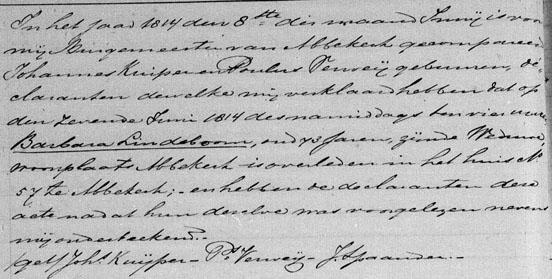 In het jaar 1814 den 8ste der maand Junij is voor
mij Burgemeester van Abbekerk gecompareerd
Johannes Kuiper en Poulus Verweij geburen, de-
claranten dewelke mij verklaard hebben dat op
den zevende Junij 1814 des namiddags ten vier uure
Barbara Lindeboom, oud 73 Jaren, zijnde Weduwe,
woonplaats Abbekerk is overleden in het huis No
57 te Abbekerk; - en hebben de declaranten deze
acte nadat hun deselve was voorgelezen nevens
mij onderteekend.-
(get) Joh.s Kuijper - P.s Verweij - J. Spaander.-